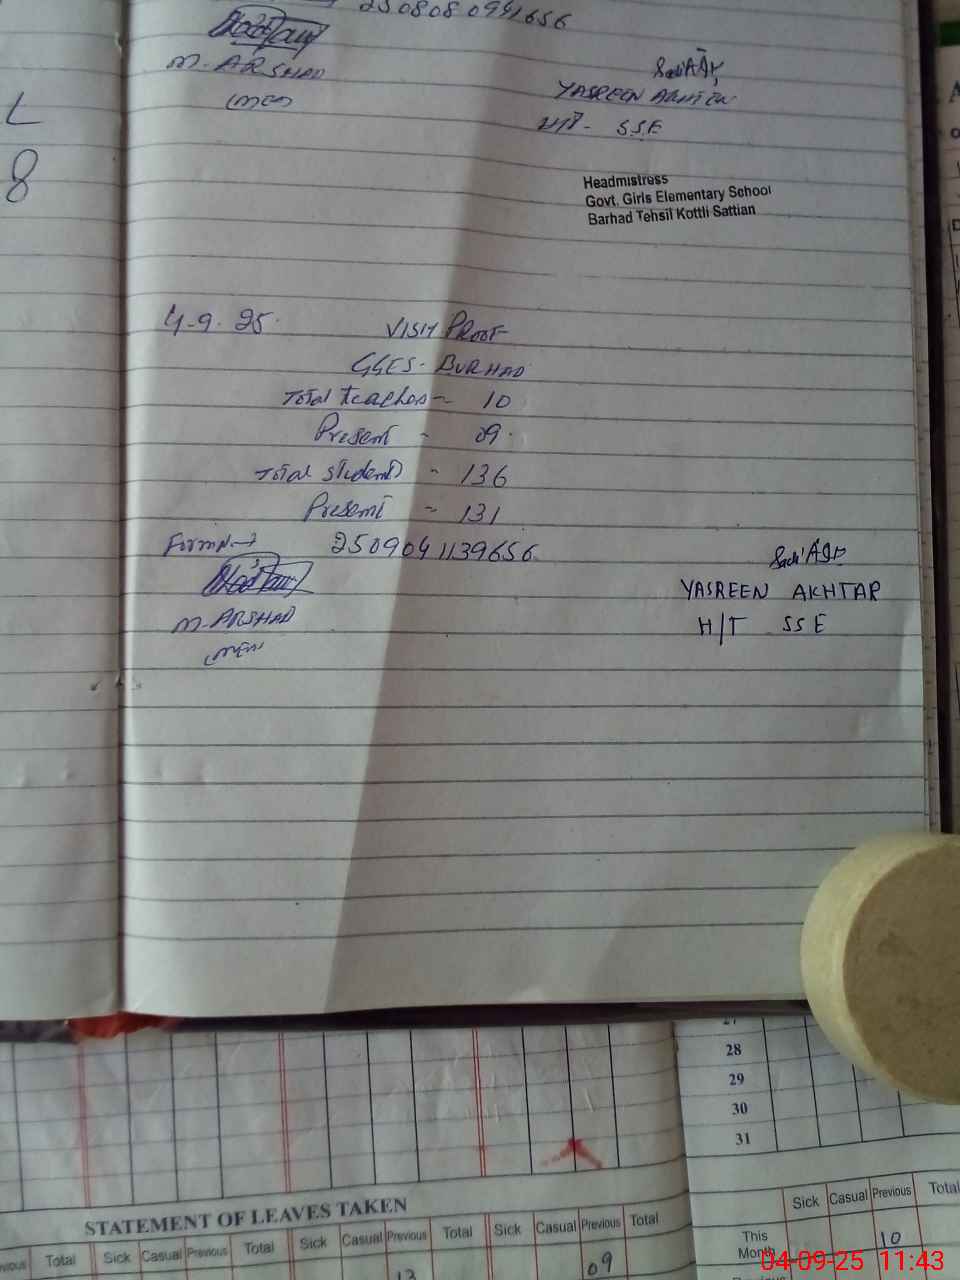 2508080941656
M. ARSHAD
(MEA)
YASREEN AKHTER
H/T - S.S.E
Headmistress
Govt. Girls Elementary School
Barhad Tehsil Kottli Sattian
L
8
4-9-25.
VISIT PROOF
GGES - BURHAD
Total teachers - 10
Present - 09.
Total students - 136
Present - 131
2509041139656
M. ARSHAD
(MEA)
YASREEN AKHTAR
H/T SSE
27
28
29
30
31
STATEMENT OF LEAVES TAKEN
Total Sick Casual Previous Total Sick Casual Previous Total Sick Casual Previous Total
13 09
Sick Casual Previous Total
This
Month 10
04-09-25 11:43